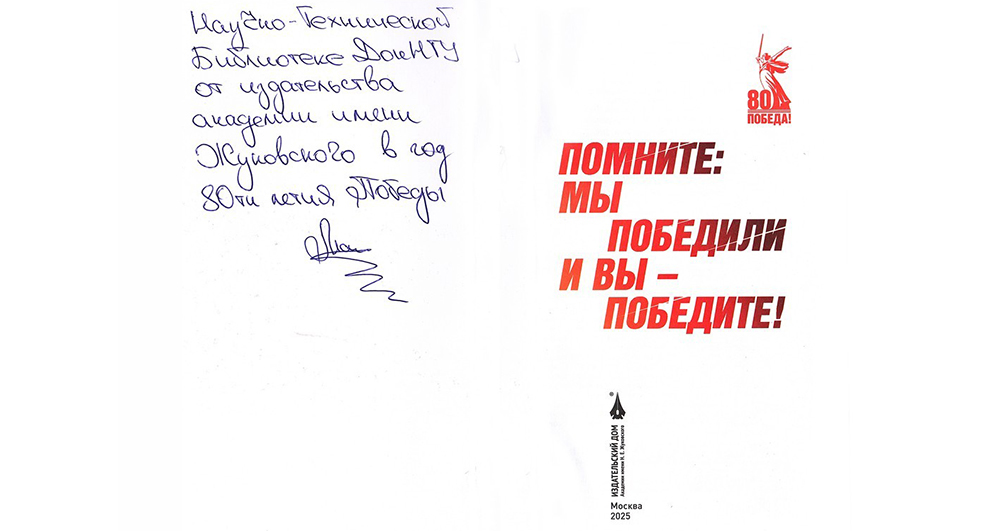 Научно-Технической
Библиотеке ДонНТУ
от издательства
академии имени
Жуковского в год
80ти летия Победы
80
ПОБЕДА!
ПОМНИТЕ:
МЫ
ПОБЕДИЛИ
И ВЫ –
ПОБЕДИТЕ!
®
ИЗДАТЕЛЬСКИЙ ДОМ
Академии имени Н. Е. Жуковского
Москва
2025